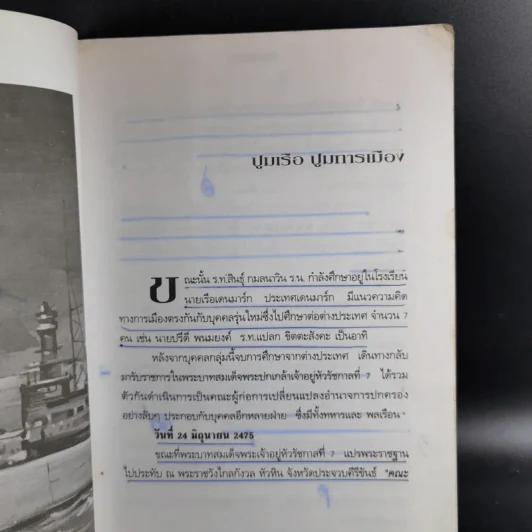 ปูมเรือ ปูมการเมือง
ขณะนั้น ร.ท.สินธุ์ กมลนาวิน ร.น. กำลังศึกษาอยู่ในโรงเรียน
นายเรือเดนมาร์ก ประเทศเดนมาร์ก มีแนวความคิด
ทางการเมืองตรงกันกับบุคคลรุ่นใหม่ซึ่งไปศึกษาต่อต่างประเทศ จำนวน 7
คน เช่น นายปรีดี พนมยงค์ ร.ท.แปลก ขิตตะสังคะ เป็นอาทิ
หลังจากบุคคลกลุ่มนี้จบการศึกษาจากต่างประเทศ เดินทางกลับ
มารับราชการในพระบาทสมเด็จพระปกเกล้าเจ้าอยู่หัวรัชกาลที่ 7 ได้รวม
ตัวกันดำเนินการเป็นคณะผู้ก่อการเปลี่ยนแปลงอำนาจการปกครอง
อย่างลับๆ ประกอบกับบุคคลอีกหลายฝ่าย ซึ่งมีทั้งทหารและ พลเรือน
วันที่ 24 มิถุนายน 2475
ขณะที่พระบาทสมเด็จพระเจ้าอยู่หัวรัชกาลที่ 7 แปรพระราชฐาน
ไปประทับ ณ พระราชวังไกลกังวล หัวหิน จังหวัดประจวบคีรีขันธ์ "คณะ